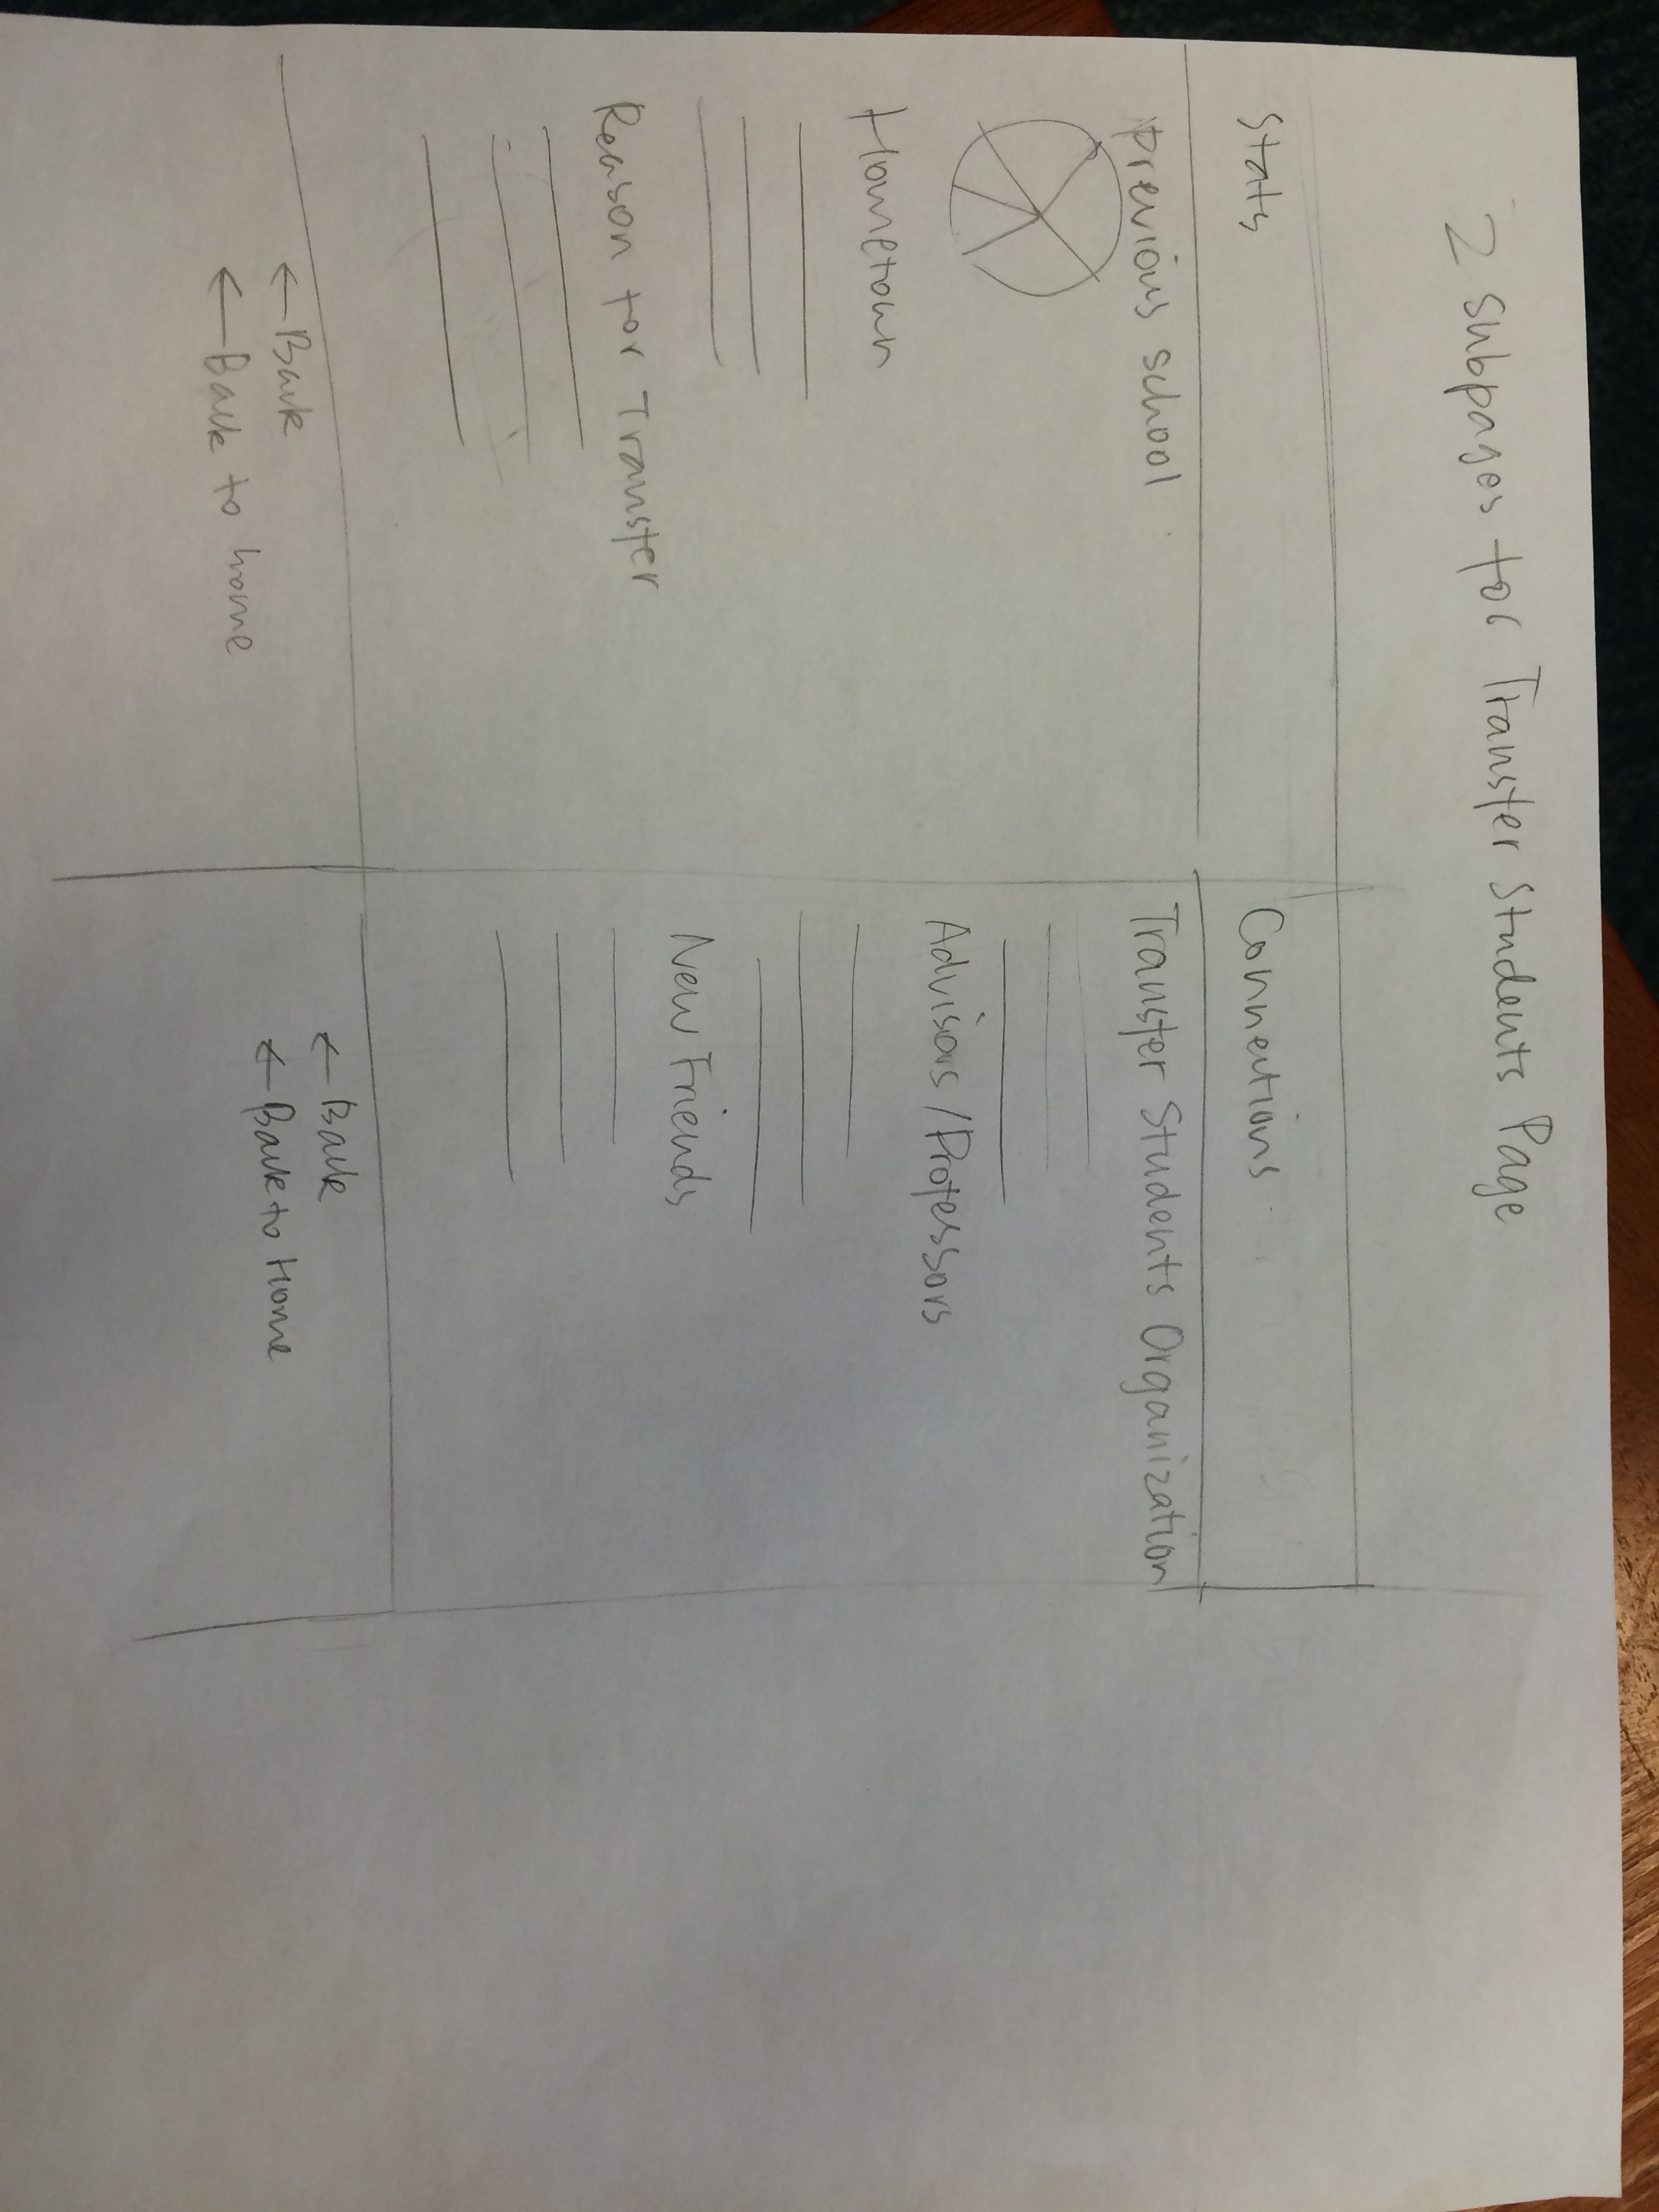 2 subpages for Transfer Students Page
Stats
previous school
Hometown
Reason for Transfer
← Back
← Back to home
Connections
Transfer Students Organization
Advisors / Professors
New Friends
← Back
← Back to Home